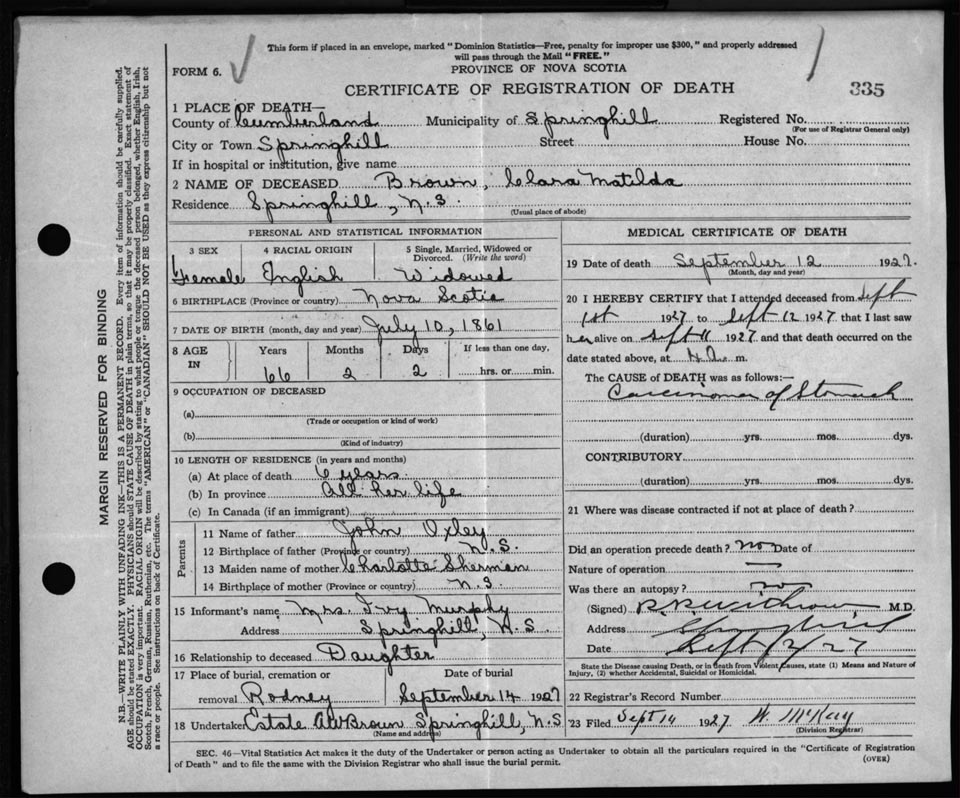 This form if placed in an envelope, marked "Dominion Statistics—Free, penalty for improper use $300," and properly addressed
will pass through the Mail "FREE."
FORM 6.
PROVINCE OF NOVA SCOTIA
CERTIFICATE OF REGISTRATION OF DEATH
335
1 PLACE OF DEATH—
County of Cumberland Municipality of Springhill Registered No.
(For use of Registrar General only)
City or Town Springhill Street House No.
If in hospital or institution, give name
2 NAME OF DECEASED Brown, Clara Matilda
Residence Springhill, N.S.
(Usual place of abode)
PERSONAL AND STATISTICAL INFORMATION
3 SEX 4 RACIAL ORIGIN 5 Single, Married, Widowed or
Divorced. (Write the word)
Female English Widowed
6 BIRTHPLACE (Province or country) Nova Scotia
7 DATE OF BIRTH (month, day and year) July 10, 1861
8 AGE IN Years Months Days If less than one day,
66 2 2 hrs. or min.
9 OCCUPATION OF DECEASED
(a)
(Trade or occupation or kind of work)
(b)
(Kind of industry)
10 LENGTH OF RESIDENCE (in years and months)
(a) At place of death 6 years
(b) In province All her life
(c) In Canada (if an immigrant)
Parents
11 Name of father John Oxley
12 Birthplace of father (Province or country) N.S.
13 Maiden name of mother Charlotte Sherman
14 Birthplace of mother (Province or country) N.S.
15 Informant's name Mrs Ivy Murphy
Address Springhill, N.S
16 Relationship to deceased Daughter
17 Place of burial, cremation or Date of burial
removal Rodney September 14 1927
18 Undertaker Estate AWBrown Springhill, N.S
(Name and address)
MEDICAL CERTIFICATE OF DEATH
19 Date of death September 12 1927.
(Month, day and year)
20 I HEREBY CERTIFY that I attended deceased from Sept
1st 1927 to Sept 12 1927 that I last saw
her alive on Sept 11 1927 and that death occurred on the
date stated above, at m.
The CAUSE of DEATH was as follows:—
Carcinoma of Stomach
(duration) yrs. mos. dys.
CONTRIBUTORY
(duration) yrs. mos. dys.
21 Where was disease contracted if not at place of death?
Did an operation precede death? no Date of
Nature of operation —
Was there an autopsy? no
(Signed) M.D.
Address Springhill
Date Sept 12/27
State the Disease causing Death, or in death from Violent Causes, state (1) Means and Nature of
Injury, (2) whether Accidental, Suicidal or Homicidal.
22 Registrar's Record Number
23 Filed Sept 14 1927 W. McKay
(Division Registrar)
SEC. 46—Vital Statistics Act makes it the duty of the Undertaker or person acting as Undertaker to obtain all the particulars required in the "Certificate of Registration
of Death" and to file the same with the Division Registrar who shall issue the burial permit.
(OVER)
MARGIN RESERVED FOR BINDING
N.B.—WRITE PLAINLY WITH UNFADING INK—THIS IS A PERMANENT RECORD. Every item of information should be carefully supplied.
AGE should be stated EXACTLY. PHYSICIANS should STATE CAUSE OF DEATH in plain terms, so that it may be properly classified. Exact statement of
OCCUPATION is very important. RACIAL ORIGIN will be described by stating to what people or tongue the deceased person belonged, whether English, Irish,
Scotch, French, German, Russian, Ruthenian, etc. The terms "AMERICAN" or "CANADIAN" SHOULD NOT BE USED as they express citizenship but not
a race or people. See instructions on back of Certificate.